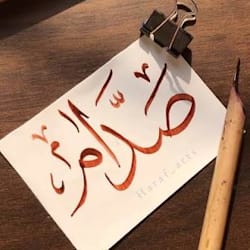 صدّام
Haraf_arts